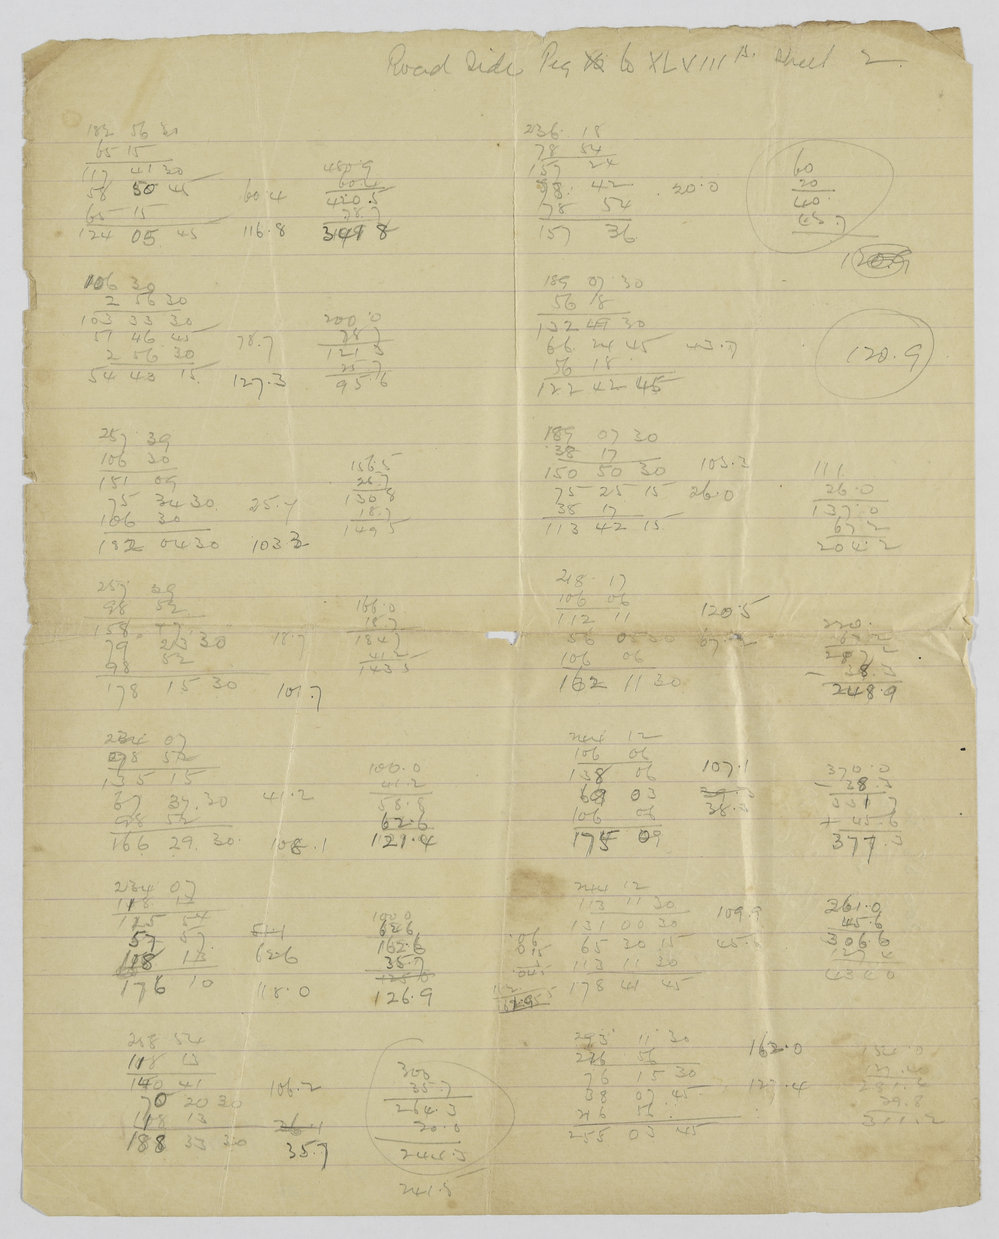 Road Side Peg to XLVIII A. Sheet 2.
182 56 30
65 15
117 41 30
58 50 45 60.4
65 15
124 05 45 116.8
480.9
60.4
420.5
78.7
236. 18
78 54
157 24
78 42 20.0
78 54
157 36
60
20
40.
120.9
106 30
2 56 30
103 33 30
51 46 45 78.7
2 56 30
54 43 15 127.3
200.0
78.7
121.3
25.7
95.6
189 07 30
56 18
132 49 30
66 24 45 43.7
56 18
122 42 45
120.9
257 39
106 30
151 09
75 34 30 25.7
106 30
182 04 30 103.3
156.5
25.7
130.8
18.7
149.5
189 07 30
38 17
150 50 30 103.3
75 25 15 26.0
38 17
113 42 15
111
26.0
137.0
67.2
204.2
257 39
98 52
158 47
79 23 30 18.7
98 52
178 15 30 101.7
166.0
18.7
184.7
41.2
143.5
218 17
106 06
112 11 120.5
56 05 30 67.2
106 06
162 11 30
220.
67.2
287.2
- 38.3
248.9
234 07
98 52
135 15
67 37.30 41.2
98 52
166 29.30. 108.1
100.0
41.2
58.8
62.6
121.4
244 12
106 06
138 06 107.1
69 03 38.3
106 06
175 09
370.0
- 38.3
331.7
+ 45.6
377.3
234 07
118 13
115 54
57 57
118 13 62.6
176 10 118.0
100.0
62.6
162.6
35.7
126.9
244 12
113 11 30
131 00 30 109.9
65 30 15 45.6
113 11 30
178 41 45
261.0
45.6
306.6
127.4
434.0
258 54
118 13
140 41
70 20 30 106.2
118 13 26.1
188 33 30 35.7
300
35.7
264.3
20.0
244.3
241.5
293 11 30
216 56 162.0
76 15 30
38 07 45 127.4
216 56
255 03 45
154.0
127.4
281.4
29.8
311.2